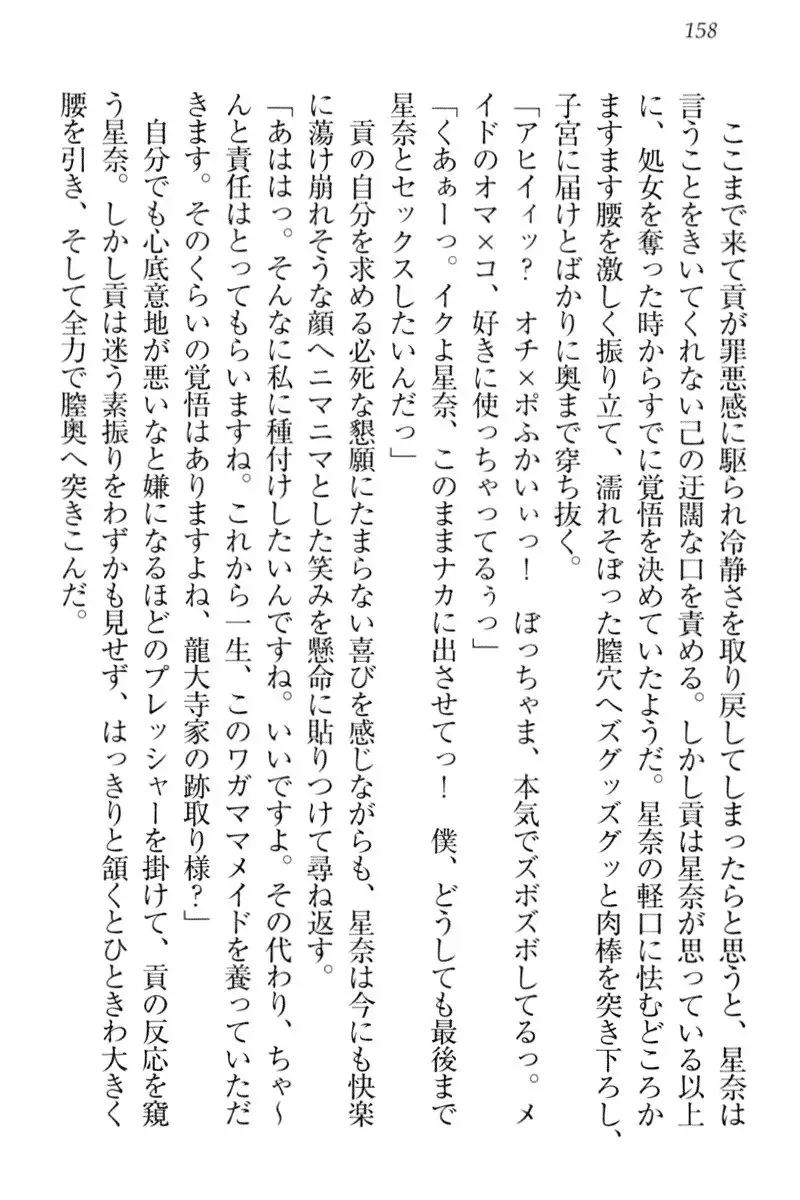 158
ここまで来て貢が罪悪感に駆られ冷静さを取り戻してしまったらと思うと、星奈は
言うことをきいてくれない己の迂闊な口を責める。しかし貢は星奈が思っている以上
に、処女を奪った時からすでに覚悟を決めていたようだ。星奈の軽口に怯むどころか
ますます腰を激しく振り立て、濡れそぼった膣穴へズグッズグッと肉棒を突き下ろし、
子宮に届けとばかりに奥まで穿ち抜く。
「アヒイィッ？　オチ×ポふかいぃっ！　ぼっちゃま、本気でズボズボしてるっ。メ
イドのオマ×コ、好きに使っちゃってるぅっ」
「くあぁーっ。イクよ星奈、このままナカに出させてっ！　僕、どうしても最後まで
星奈とセックスしたいんだっ」
貢の自分を求める必死な懇願にたまらない喜びを感じながらも、星奈は今にも快楽
に蕩け崩れそうな顔へニマニマとした笑みを懸命に貼りつけて尋ね返す。
「あははっ。そんなに私に種付けしたいんですね。いいですよ。その代わり、ちゃ～
んと責任はとってもらいますね。これから一生、このワガママメイドを養っていただ
きます。そのくらいの覚悟はありますよね、龍大寺家の跡取り様？」
自分でも心底意地が悪いなと嫌になるほどのプレッシャーを掛けて、貢の反応を窺
う星奈。しかし貢は迷う素振りをわずかも見せず、はっきりと頷くとひときわ大きく
腰を引き、そして全力で膣奥へ突きこんだ。